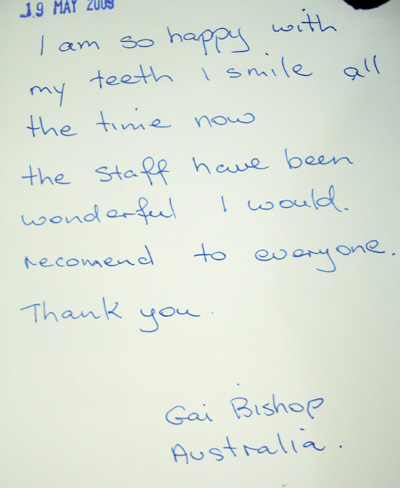 19 MAY 2009
I am so happy with
my teeth I smile all
the time now
the staff have been
wonderful I would.
recomend to everyone.
Thank you.
Gai Bishop
Australia.